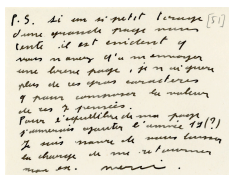 P.S. si un si petit tirage [51]
d'une grande page vous
tente il est évident q
vous n'avez q'a m'envoyer
une bonne page, je n'ai
plus de ces gros caracteres
q pour composer la valeur
de ces 7 pensées.
Pour l'équilibre de ma page
j'aimerais ajouter l'année 19(?)
Je suis navré de vous laisser
la charge de me retourner
mon ex. merci.